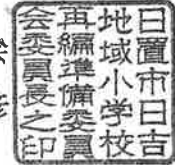 日置市日吉
地域小学校
再編準備委員
会委員長之印